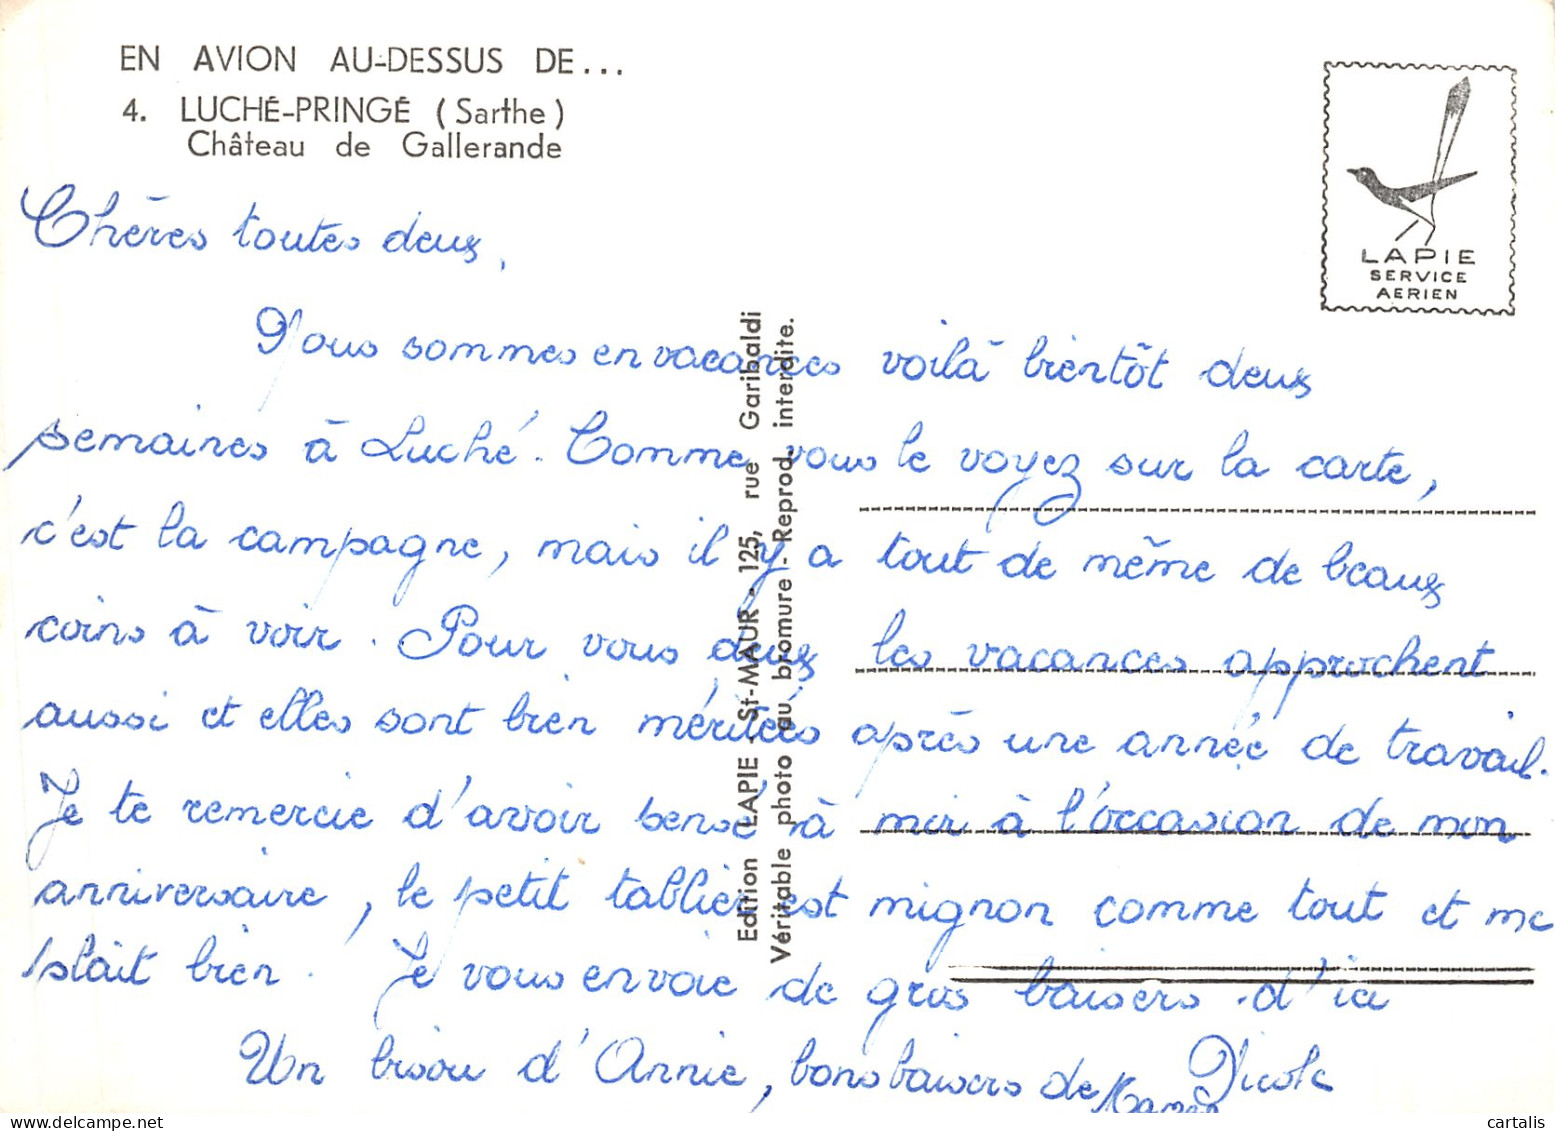 EN AVION AU-DESSUS DE...
4. LUCHÉ-PRINGÉ (Sarthe)
Château de Gallerande
LAPIE
SERVICE
AERIEN
Chères toutes deux,
Nous sommes en vacances voilà bientôt deux
semaines à Luché. Comme vous le voyez sur la carte,
c'est la campagne, mais il y a tout de même de beaux
coins à voir. Pour vous deux les vacances approchent
aussi et elles sont bien méritées après une année de travail.
Je te remercie d'avoir pensé à moi à l'occasion de mon
anniversaire, le petit tablier est mignon comme tout et me
plait bien. Je vous envoie de gros baisers d'ici
Nicole
Un bisou d'Annie, bons baisers de
Edition LAPIE - St-MAUR - 125, rue Garibaldi
Véritable photo au bromure - Reprod. interdite.
delcampe.net
cartalis